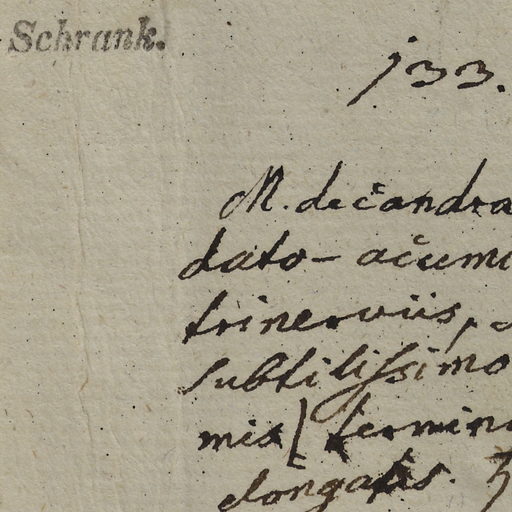 Schrank.
133.
M. decandra
dato- acumi
trinerviis,
subtilissimo
mis[ termin
elongatis.